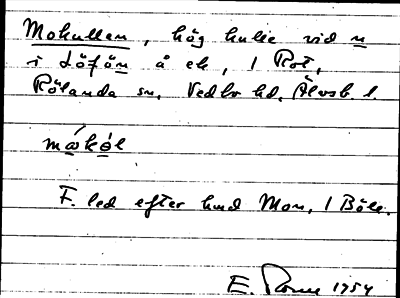 Mokullen, hög kulle vid n
i Löfån å ek, 1 Rot,
Rölanda sn, Vedbo hd, Älvsb. l.
mókól
F. led efter hmd Mon, 1 Böle.
E. 1954